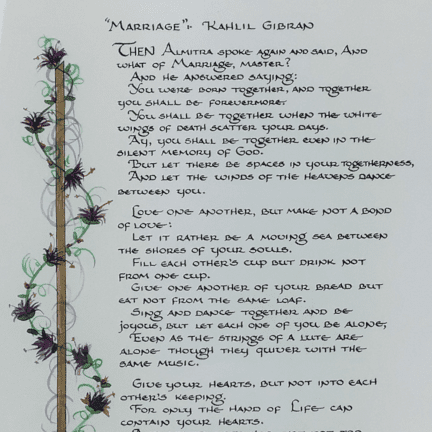 "Marriage" - Kahlil Gibran
Then Almitra spoke again and said, And
what of Marriage, master?
And he answered saying:
You were born together, and together
you shall be forevermore.
You shall be together when the white
wings of death scatter your days.
Ay, you shall be together even in the
silent memory of God.
But let there be spaces in your togetherness,
And let the winds of the heavens dance
between you.
Love one another, but make not a bond
of love:
Let it rather be a moving sea between
the shores of your souls.
Fill each other's cup but drink not
from one cup.
Give one another of your bread but
eat not from the same loaf.
Sing and dance together and be
joyous, but let each one of you be alone,
Even as the strings of a lute are
alone though they quiver with the
same music.
Give your hearts, but not into each
other's keeping.
For only the hand of Life can
contain your hearts.